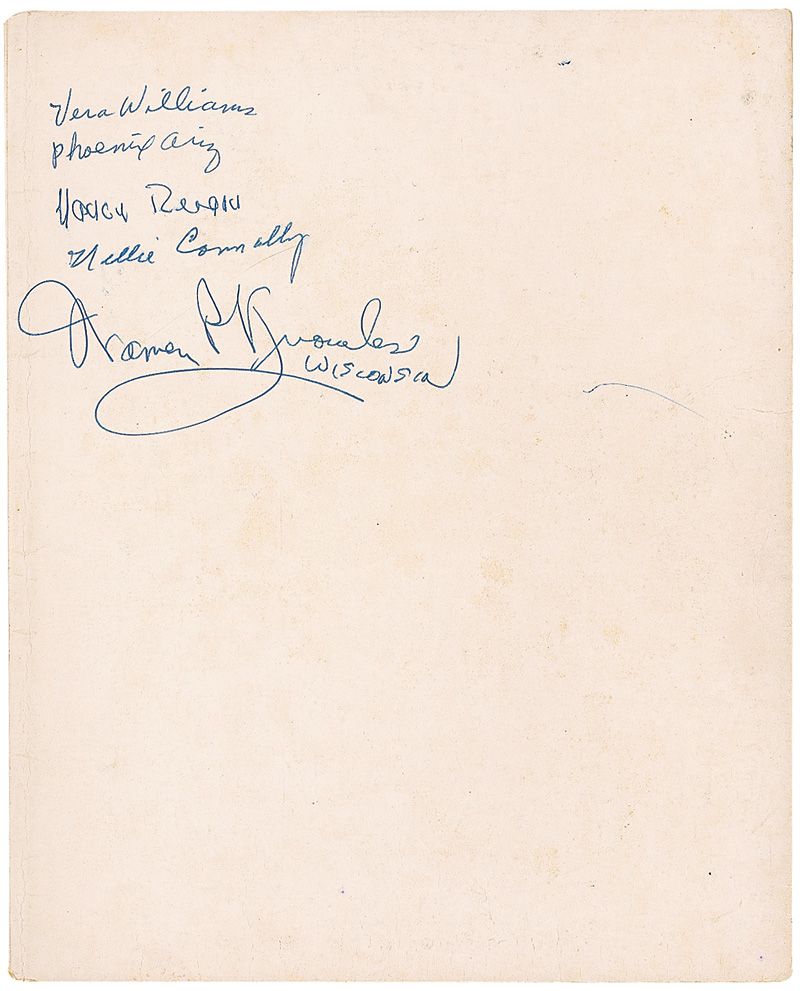 Vera Williams
phoenix ariz
Nancy Reagan
Nellie Connally
Warren P Knowles
WISCONSIN